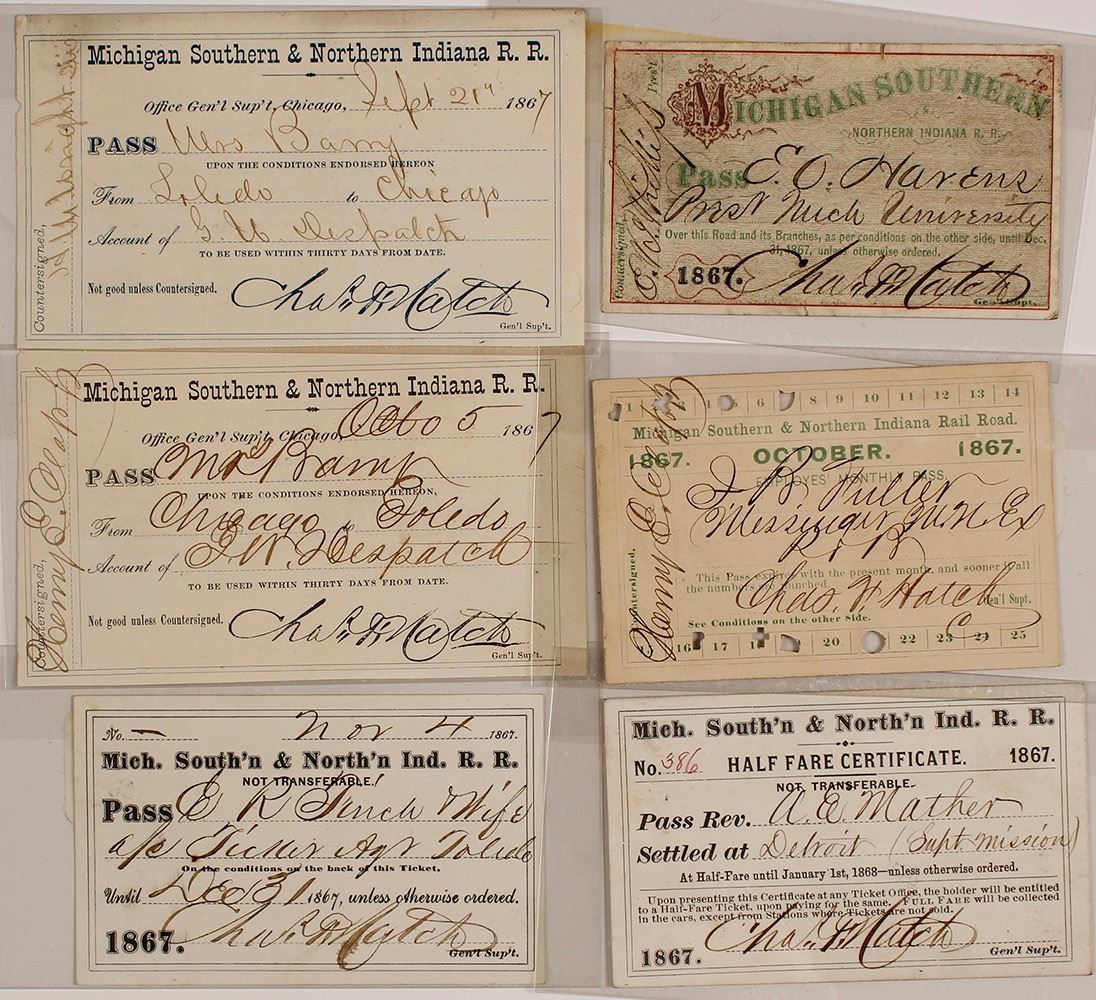 Michigan Southern & Northern Indiana R. R.
Office Gen'l Sup't, Chicago, Sept 21" 1867
PASS Mrs Barry
UPON THE CONDITIONS ENDORSED HEREON
From Toledo to Chicago
Account of G. W. Despatch
TO BE USED WITHIN THIRTY DAYS FROM DATE.
Not good unless Countersigned.
Chas. F. Hatch
Gen'l Sup't.
Countersigned,
MICHIGAN SOUTHERN
&
NORTHERN INDIANA R. R.
Pass E. O. Havens
Prest Mich University
Over this Road and its Branches, as per conditions on the other side, until Dec.
31, 1867, unless otherwise ordered.
1867. Chas. F. Hatch
Gen'l Supt.
Countersigned
Pres't
Michigan Southern & Northern Indiana R. R.
Office Gen'l Sup't, Chicago, Octo 5 1867
PASS Mr Barry
UPON THE CONDITIONS ENDORSED HEREON,
From Chicago to Toledo
Account of G. W. Despatch
TO BE USED WITHIN THIRTY DAYS FROM DATE.
Not good unless Countersigned.
Chas. F. Hatch
Gen'l Sup't.
Countersigned,
Henry E.
1 4 6 8 9 10 11 12 13 14
Michigan Southern & Northern Indiana Rail Road.
1867. OCTOBER. 1867.
EMPLOYES' MONTHLY PASS.
J B Fuller
Messinger M. U. Ex
This Pass expires with the present month, and sooner if all
the numbers are punched.
Chas. F. Hatch
Gen'l Supt.
See Conditions on the other Side.
16 17 20 22 23 24 25
Countersigned.
Henry E.
No. — Nov 4 1867.
Mich. South'n & North'n Ind. R. R.
NOT TRANSFERABLE.
Pass E R Finch & Wife
a/c Ticket Agt Toledo
On the conditions on the back of this Ticket,
Until Dec 31 1867, unless otherwise ordered.
1867. Chas. F. Hatch
Gen'l Sup't.
Mich. South'n & North'n Ind. R. R.
No. 386 HALF FARE CERTIFICATE. 1867.
NOT TRANSFERABLE.
Pass Rev. A. E. Mather
Settled at Detroit (Supt. Mission)
At Half-Fare until January 1st, 1868—unless otherwise ordered.
Upon presenting this Certificate at any Ticket Office, the holder will be entitled
to a Half-Fare Ticket, upon paying for the same. FULL FARE will be collected
in the cars, except from Stations where Tickets are not sold.
Chas. F. Hatch
1867. Gen'l Sup't.